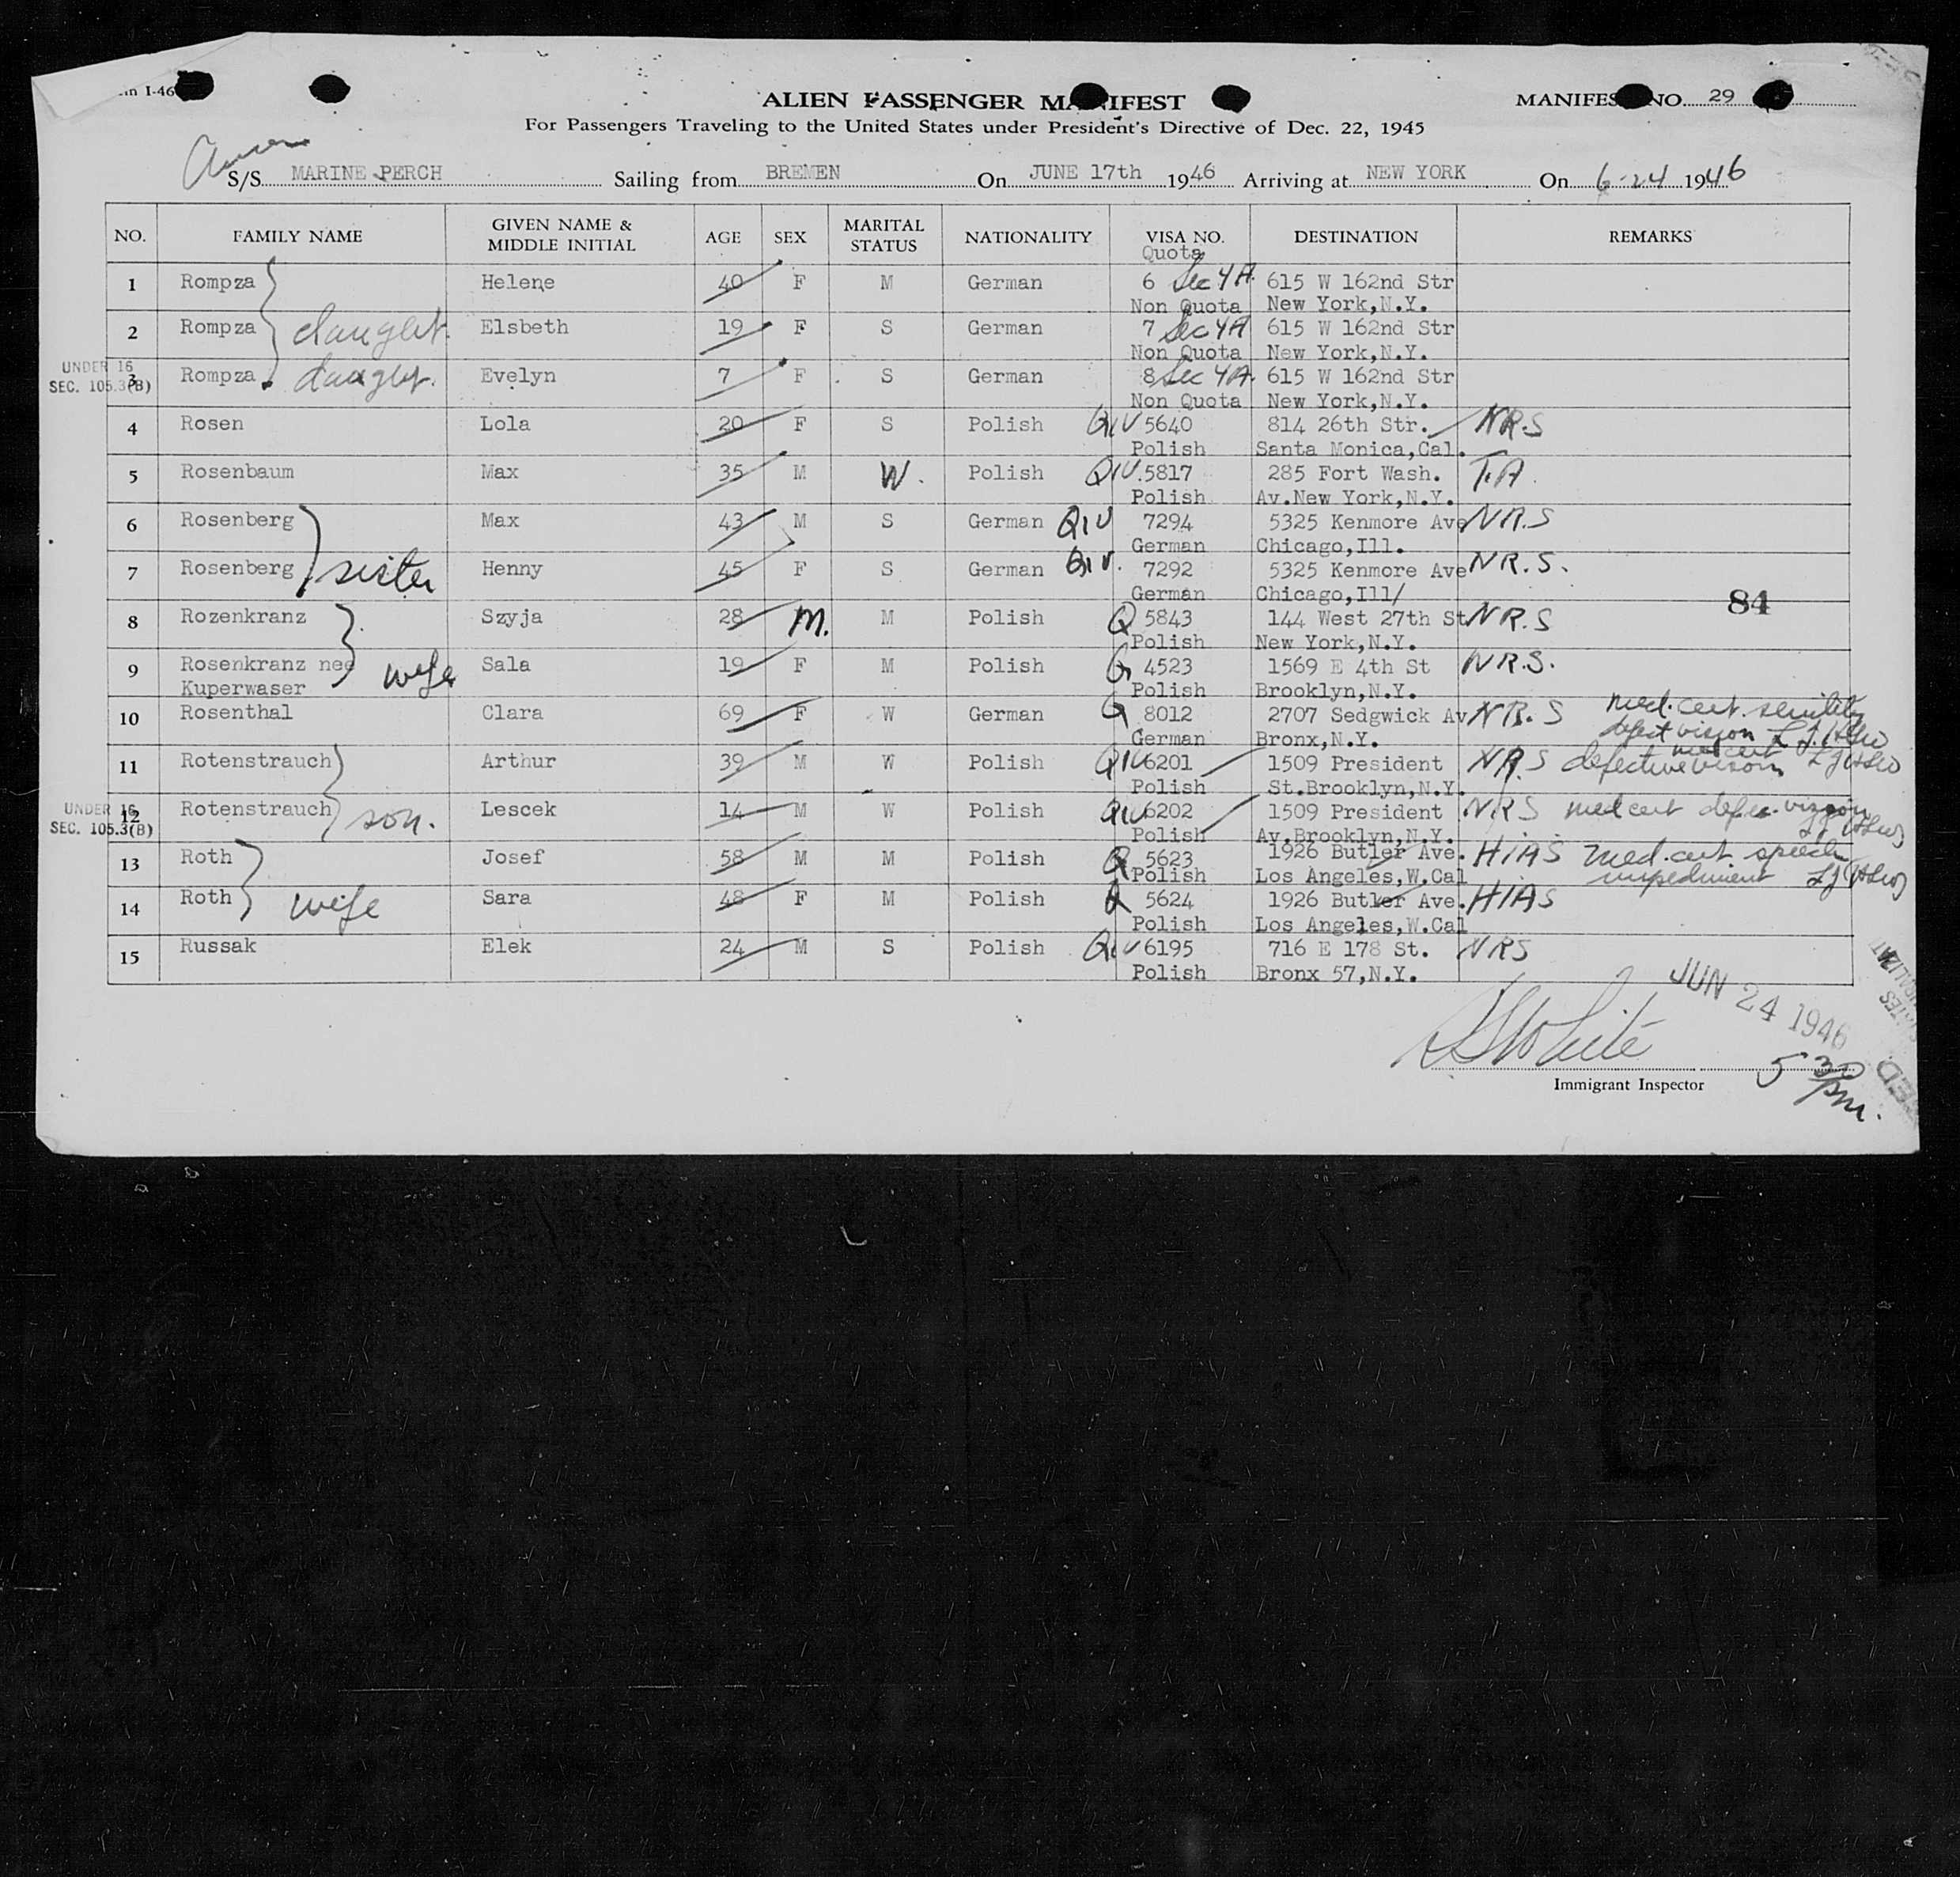 I-46
ALIEN PASSENGER MANIFEST
MANIFEST NO. 29
For Passengers Traveling to the United States under President's Directive of Dec. 22, 1945
S/S MARINE PERCH Sailing from BREMEN On JUNE 17th 1946 Arriving at NEW YORK On 6-24 1946
NO. FAMILY NAME GIVEN NAME & MIDDLE INITIAL AGE SEX MARITAL STATUS NATIONALITY VISA NO. DESTINATION REMARKS
Quota
1 Rompza Helene 40 F M German 6 Sec 4A 615 W 162nd Str
Non Quota New York,N.Y.
2 Rompza daught. Elsbeth 19 F S German 7 Sec 4A 615 W 162nd Str
Non Quota New York,N.Y.
UNDER 16
SEC. 105.3(B)
3 Rompza daught. Evelyn 7 F S German 8 Sec 4A. 615 W 162nd Str
Non Quota New York,N.Y.
4 Rosen Lola 20 F S Polish QIV 5640 814 26th Str. NRS
Polish Santa Monica,Cal.
5 Rosenbaum Max 35 M W. Polish QIV. 5817 285 Fort Wash. T.A.
Polish Av.New York,N.Y.
6 Rosenberg Max 43 M S German QIV 7294 5325 Kenmore Ave NR.S
German Chicago,Ill.
7 Rosenberg sister Henny 45 F S German QIV. 7292 5325 Kenmore Ave NR.S.
German Chicago,Ill/
84
8 Rozenkranz Szyja 28 M. M Polish Q 5843 144 West 27th St NR.S
Polish New York,N.Y.
9 Rosenkranz nee wife Sala 19 F M Polish Q 4523 1569 E 4th St NR.S.
Kuperwaser Polish Brooklyn,N.Y.
10 Rosenthal Clara 69 F W German Q 8012 2707 Sedgwick Av NR.S med. cert. senility
German Bronx,N.Y. defect vision
11 Rotenstrauch Arthur 39 M W Polish QIV 6201 1509 President NR.S med cert defective vision
Polish St.Brooklyn,N.Y.
UNDER 16
SEC. 105.3(B)
12 Rotenstrauch son. Lescek 14 M W Polish QIV 6202 1509 President NRS med cert defec. vission
Polish Av.Brooklyn,N.Y.
13 Roth Josef 58 M M Polish Q 5623 1926 Butler Ave. HIAS med. cert. speech
Polish Los Angeles,W.Cal impediment
14 Roth wife Sara 48 F M Polish Q 5624 1926 Butler Ave. HIAS
Polish Los Angeles,W.Cal
15 Russak Elek 24 M S Polish QIV 6195 716 E 178 St. NRS
Polish Bronx 57,N.Y.
JUN 24 1946
White
Immigrant Inspector
5 30 pm.